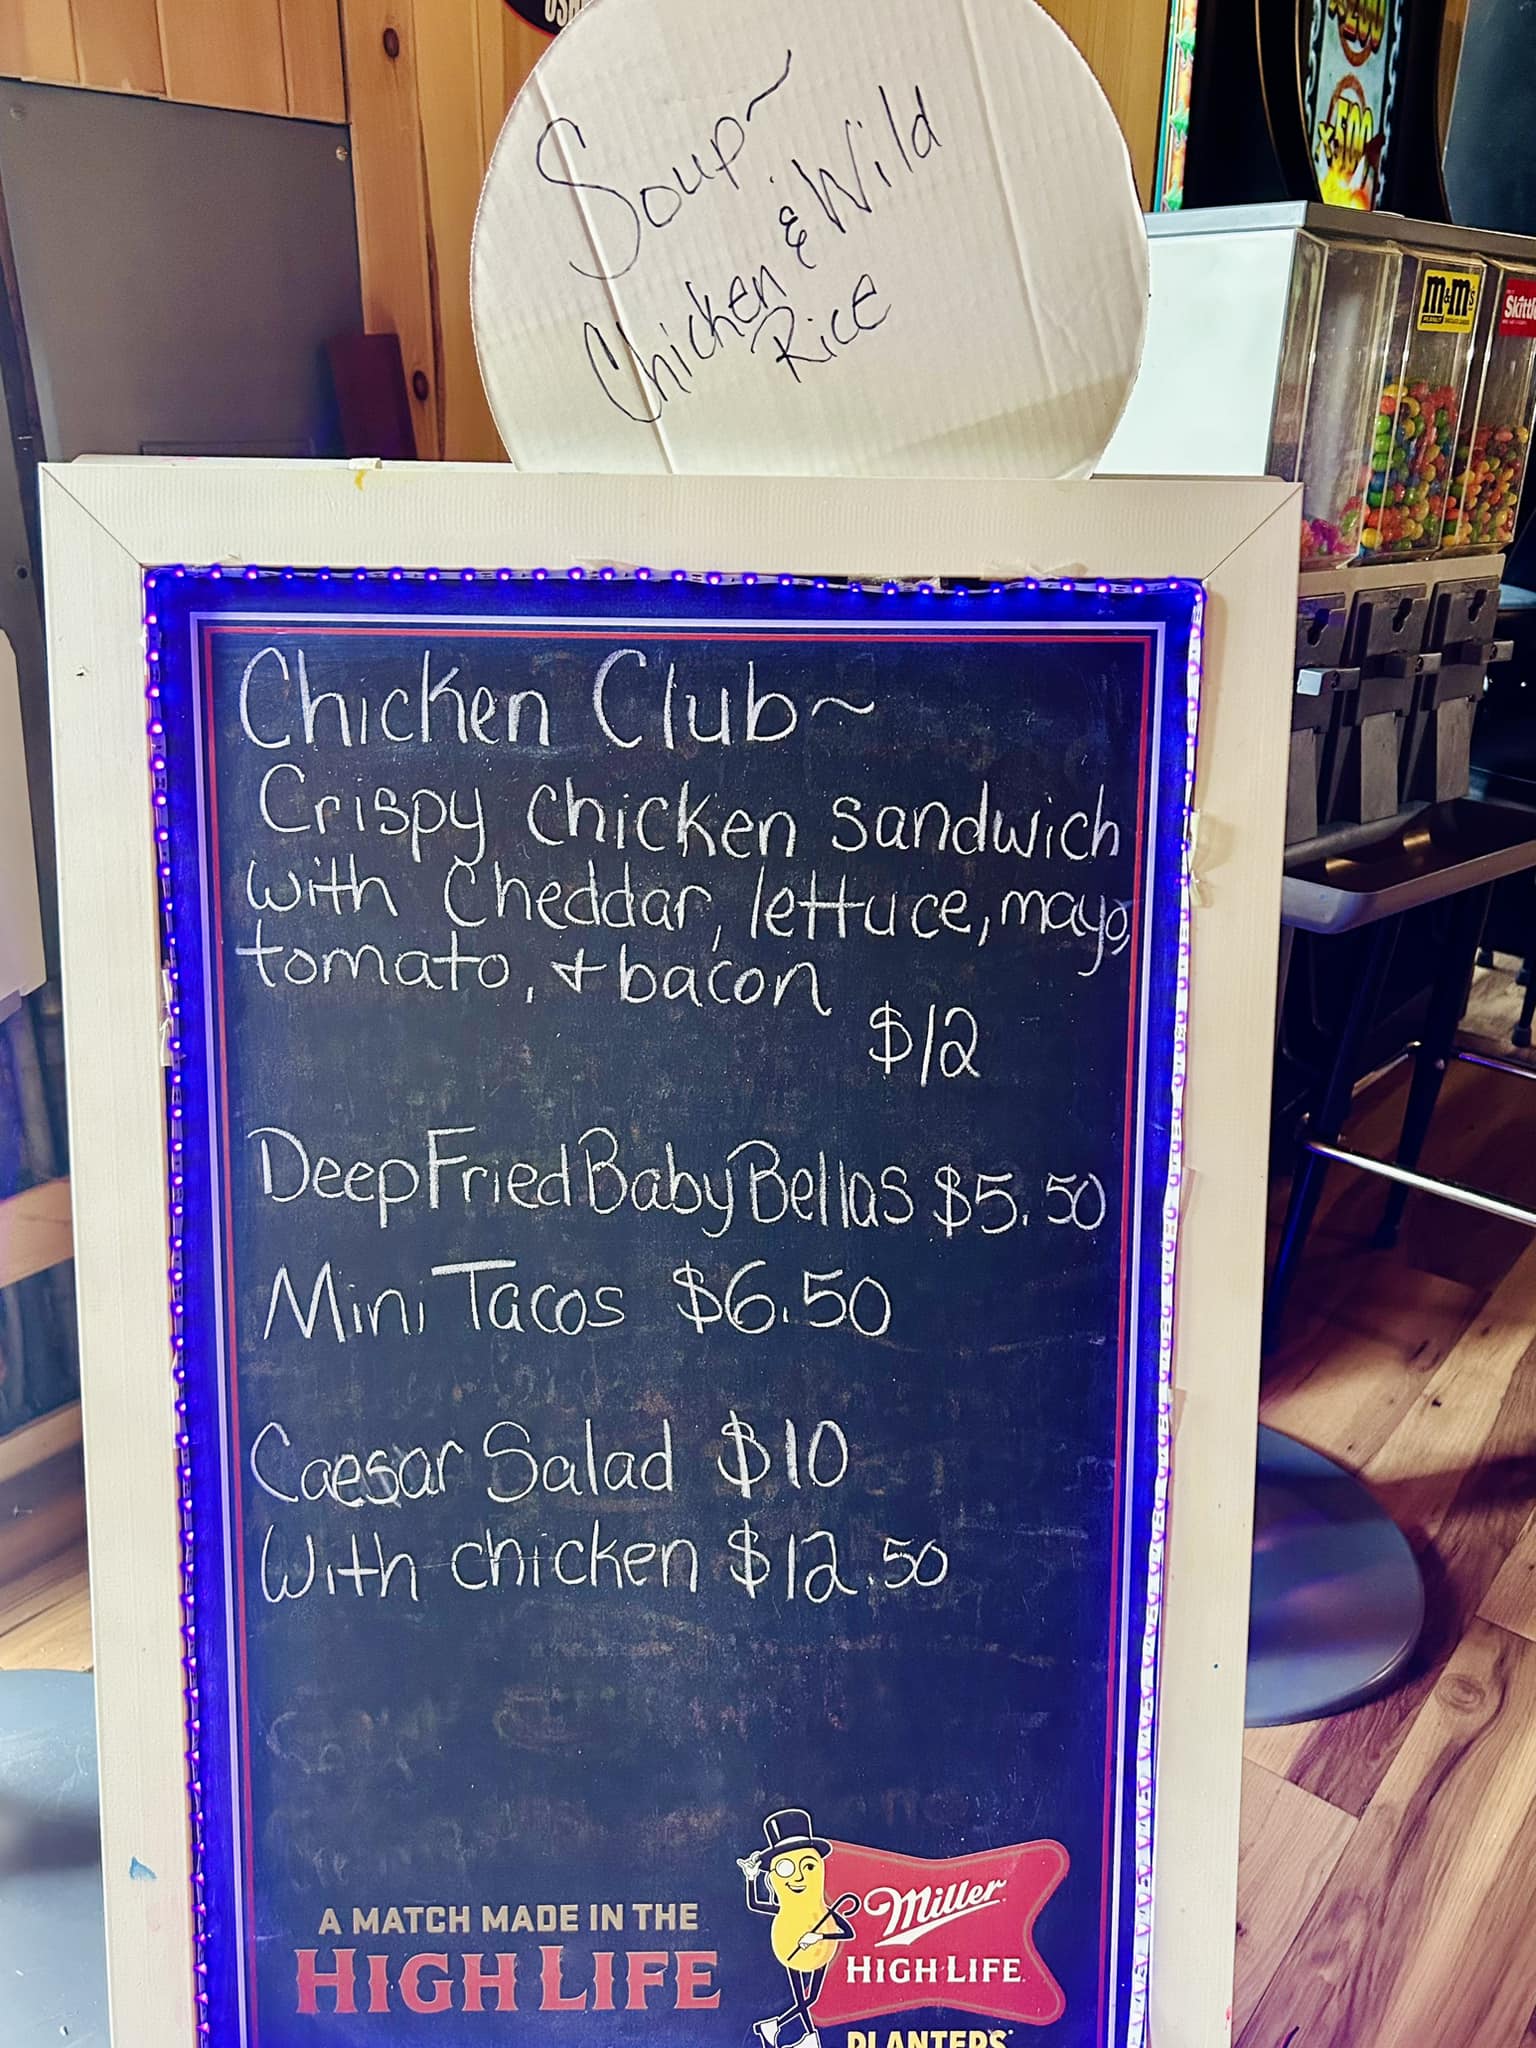 Soup~
Chicken & Wild
Rice
x500
M&M's
Chicken Club~
Crispy chicken sandwich
with Cheddar, lettuce, mayo,
tomato, + bacon
$12
Deep Fried Baby Bellas $5.50
Mini Tacos $6.50
Caesar Salad $10
With chicken $12.50
A MATCH MADE IN THE
HIGH LIFE
Miller
HIGH LIFE
PLANTERS